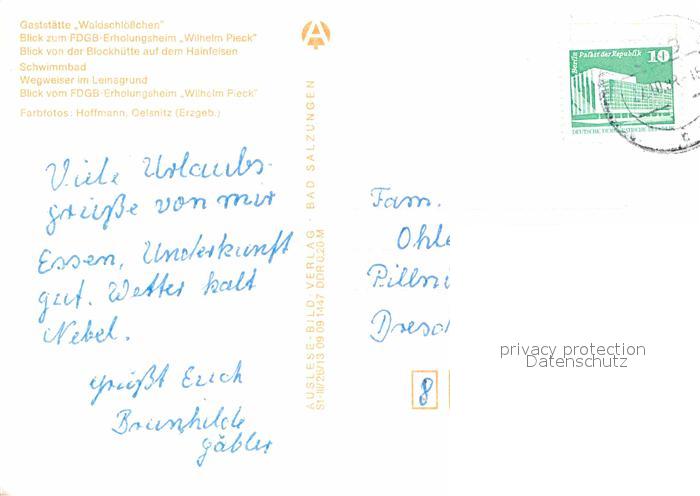 Gaststätte „Waldschlößchen"
Blick zum FDGB-Erholungsheim „Wilhelm Pieck"
Blick von der Blockhütte auf dem Hainfelsen
Schwimmbad
Wegweiser im Leinagrund
Blick vom FDGB-Erholungsheim „Wilhelm Pieck"
Farbfotos: Hoffmann, Oelsnitz (Erzgeb.)
Viele Urlaubs-
grüße von mir
Essen, Unterkunft
gut. Wetter kalt
Nebel.
grüßt Euch
Brunhilde
Gäbler
AUSLESE-BILD-VERLAG · BAD SALZUNGEN
St-III/26/13 09 09 1447 DDR 0,20 M
Berlin, Palast der Republik
10
Fam.
Ohle
Pillni
Dresd
8
privacy protection
Datenschutz